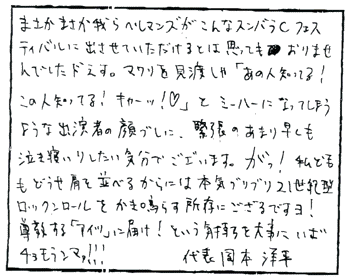 まさかまさか我らベルマンズがこんなスンバラCフェス
ティバルに出させていただけるとは思っても おりませ
んでしたドスえ。マワリを見渡しゃ「あの人知ってる!
この人知ってる! キャーッ!♡」とミーハーになってしまう
ような出演者の顔ぶれに、緊張のあまり早くも
泣き寝いりしたい気分でございます。がっ! 私ども
もどうせ肩を並べるからには本気ブリブリ21世紀型
ロックンロールをかき鳴らす所存にござるですヨ!
尊敬する「アイツ」に届け!という気持ちを大事にいざ
チョモランマァ!!!
代表 岡本 洋平